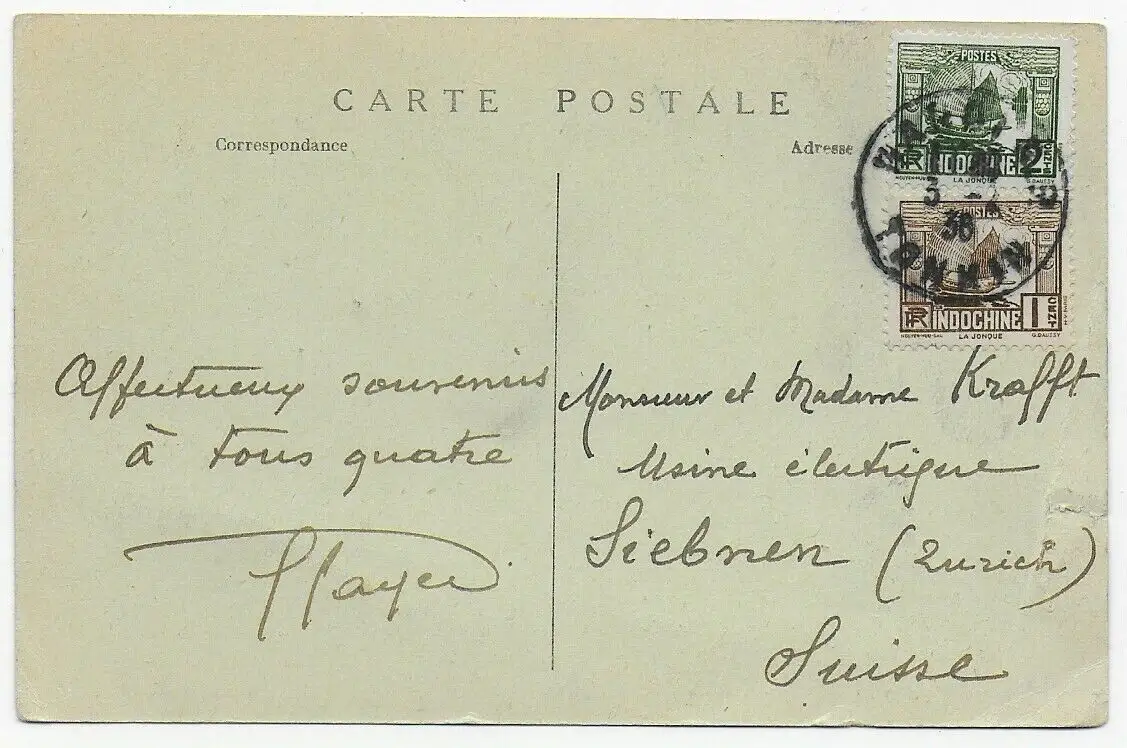 CARTE POSTALE
Correspondance
Adresse
POSTES
RF INDOCHINE 2
LA JONQUE
G. DAUSSY
3
36
TONKIN
POSTES
RF INDOCHINE 1
LA JONQUE
G. DAUSSY
Affectueux souvenirs
à tous quatre
Monsieur et Madame Krafft
Usine électrique
Siebnen (Zurich)
Suisse